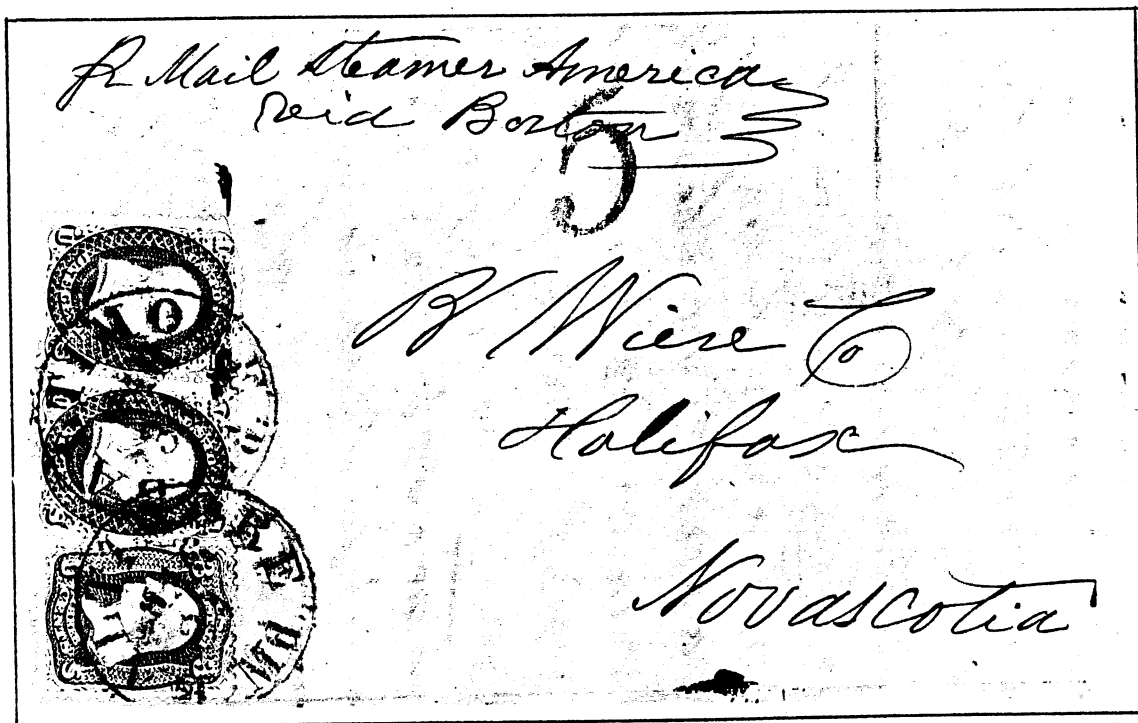 pr Mail Steamer America
via Boston
5
B Wiese Co
Halifax
Novascotia